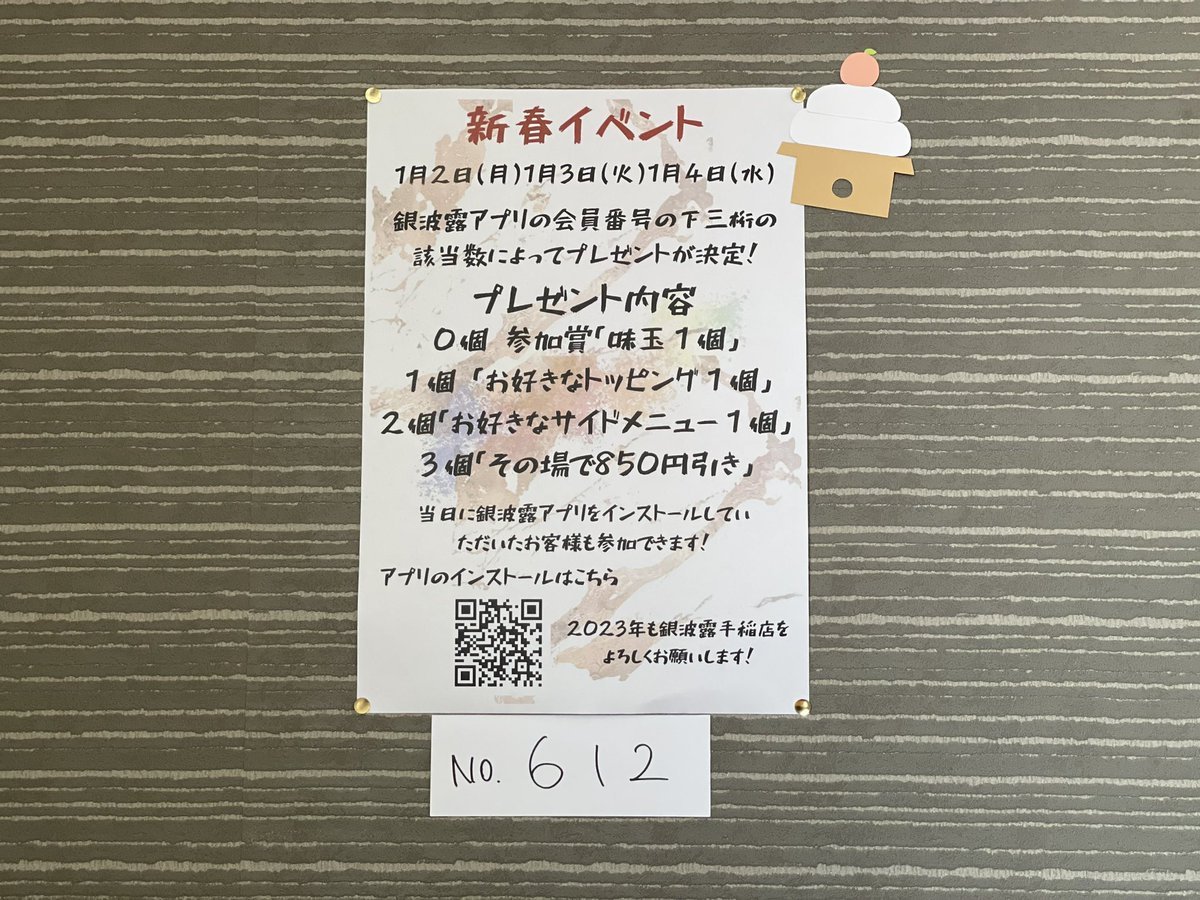 新春イベント
1月2日(月)1月3日(火)1月4日(水)
銀波露アプリの会員番号の下三桁の
該当数によってプレゼントが決定!
プレゼント内容
0個 参加賞「味玉1個」
1個 「お好きなトッピング1個」
2個「お好きなサイドメニュー1個」
3個「その場で850円引き」
当日に銀波露アプリをインストールしてい
ただいたお客様も参加できます!
アプリのインストールはこちら
2023年も銀波露手稲店を
よろしくお願いします!
NO. 612